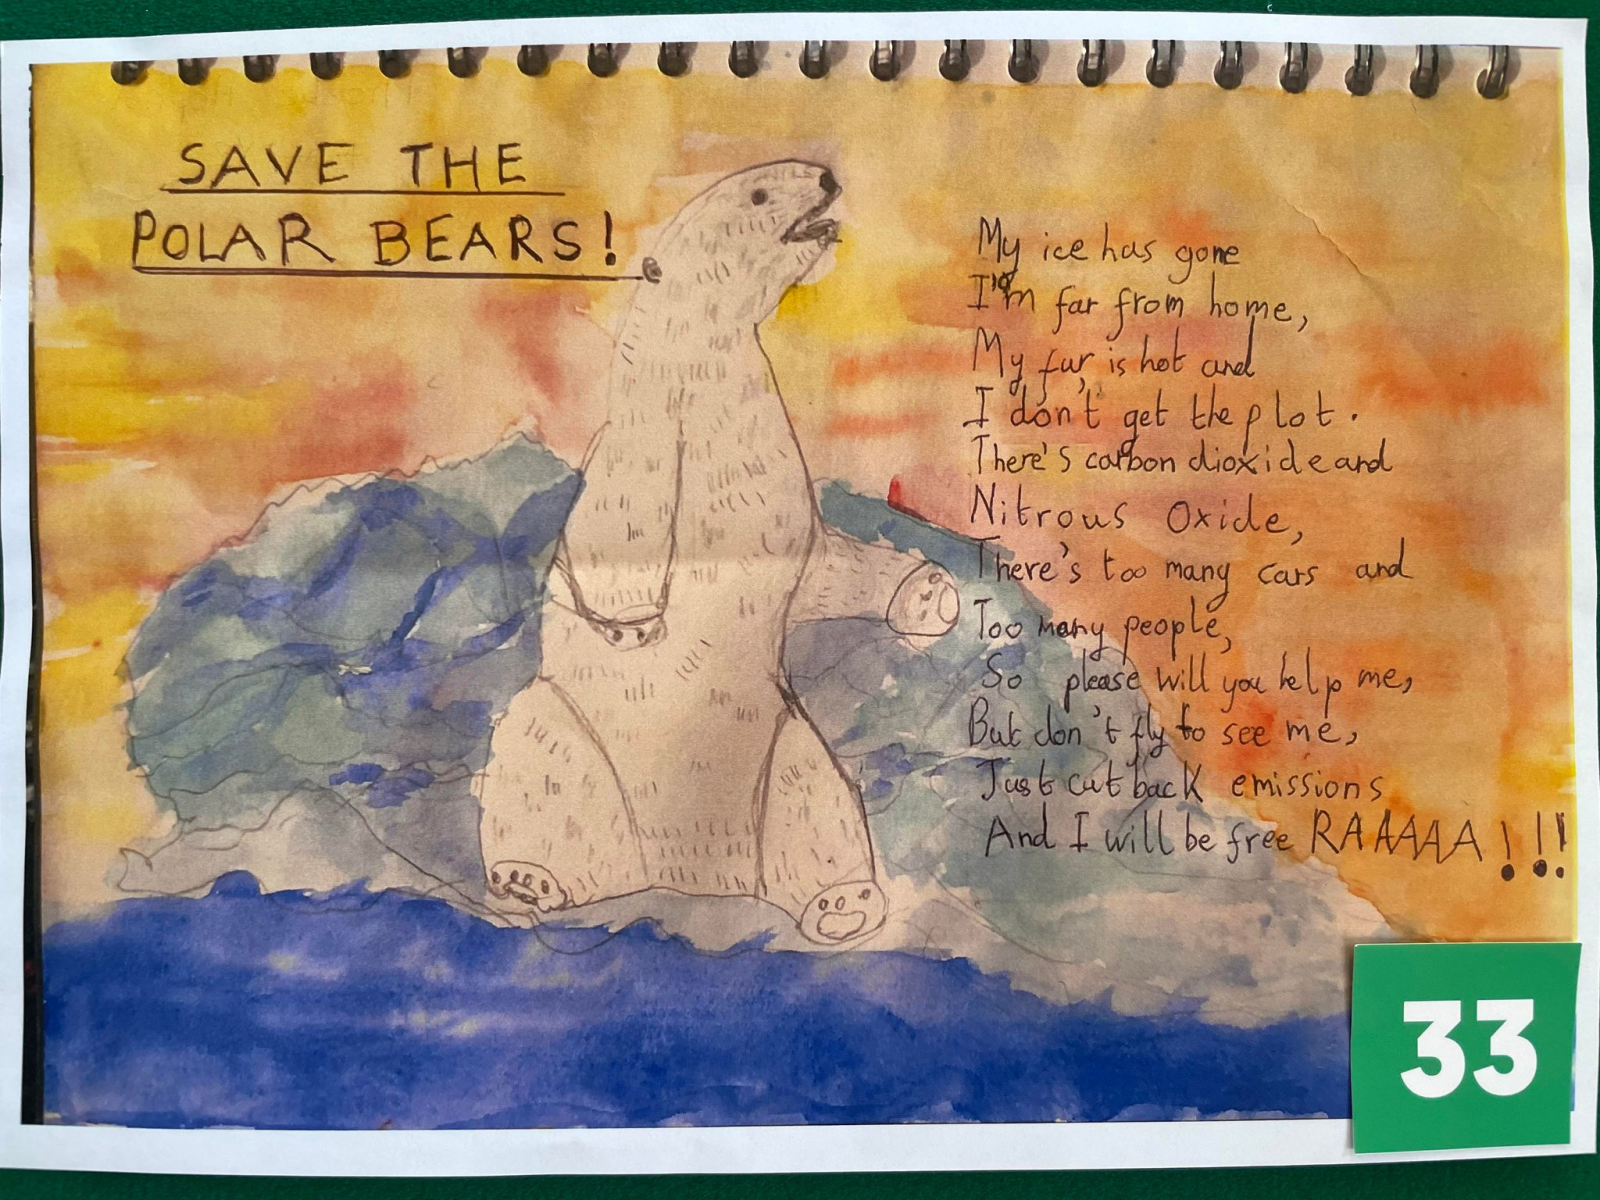 SAVE THE
POLAR BEARS!
My ice has gone
I'm far from home,
My fur is hot and
I don't get the plot.
There's carbon dioxide and
Nitrous Oxide,
There's too many cars and
Too many people,
So please will you help me,
But don't fly to see me,
Just cut back emissions
And I will be free RAAAAA!!!
33